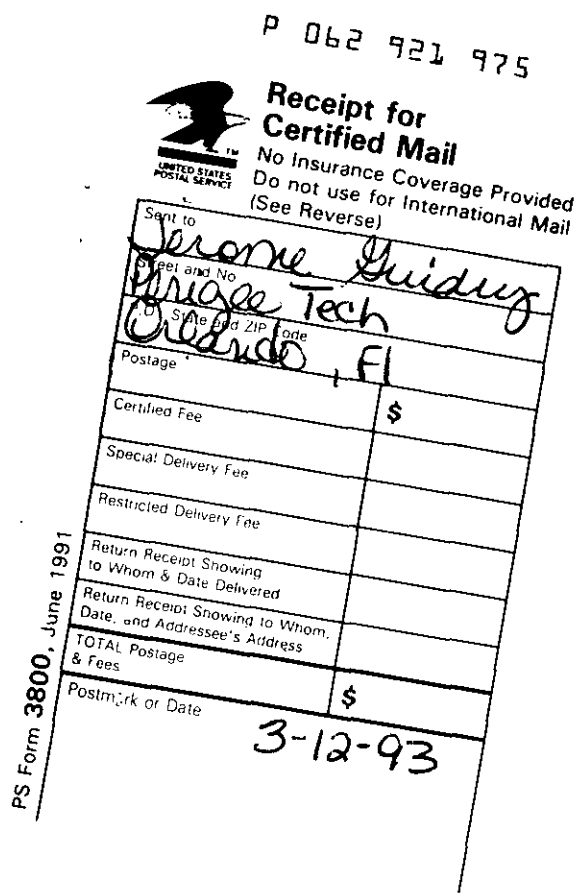 P 062 921 975
Receipt for
Certified Mail
No Insurance Coverage Provided
Do not use for International Mail
(See Reverse)
UNITED STATES
POSTAL SERVICE
TM
Sent to
Jerome Guidry
Street and No
Perigee Tech
P.O., State and ZIP Code
Orlando, Fl
Postage
$
Certified Fee
Special Delivery Fee
Restricted Delivery Fee
Return Receipt Showing
to Whom & Date Delivered
Return Receipt Showing to Whom,
Date, and Addressee's Address
TOTAL Postage
& Fees
$
Postmark or Date
3-12-93
PS Form 3800, June 1991